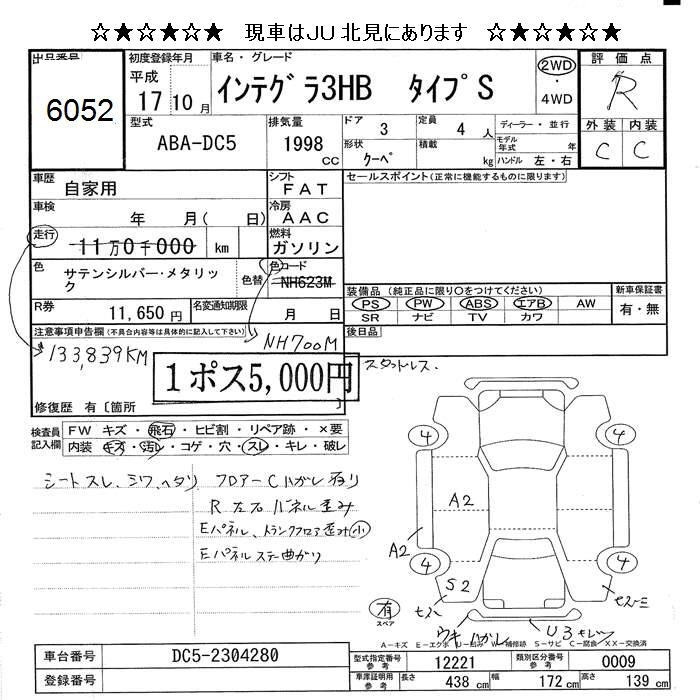 ☆★☆★☆★ 現車はJU北見にあります ☆★☆★☆★
出品番号
6052
初度登録年月
平成
17 10 月
車名・グレード
インテグラ3HB タイプS
2WD
・
4WD
評価点
R
外装 内装
C C
型式
ABA-DC5
排気量
1998
cc
ドア
3
定員
4 人
形状
クーペ
積載
kg
ディーラー・並行
モデル
年式 年
ハンドル 左・右
車歴
自家用
シフト
FAT
車検
年 月( 日)
冷房
AAC
走行
11万0千000 km
燃料
ガソリン
色
サテンシルバー・メタリッ
ク
色替
色コード
NH623M
R券
11,650 円
名変通知期限
月 日
セールスポイント(正常に機能するものに限ります)
装備品 (純正品に限り○をつけてください)
PS PW ABS エアB AW
SR ナビ TV カワ
新車保証書
有・無
後日品
スタットレス.
注意事項申告欄(不具合内容等は具体的に記入して下さい)
133,839KM
NH700M
1ポス5,000円
修復歴 有〔箇所
検査員
記入欄
FW キズ・飛石・ヒビ割・リペア跡・×要
内装 キズ・汚レ・コゲ・穴・スレ・キレ・破レ
シートスレ、シワ、ヘタリ フロアーCハガレ有り
R左右パネル歪み
Eパネル、トランクフロア歪み小
Eパネルステー曲がり
4 4
A2
A2
4 4
S2
有
スペア
ウキ ハガレ
U3
A-キズ E-エクボ U-凹み W-補修跡 S-サビ C-腐食 XX-交換済
車台番号
DC5-2304280
登録番号
型式指定番号
参考
12221
類別区分番号
参考
0009
車庫証明用
参考
長さ 438 cm 幅 172 cm 高さ 139 cm